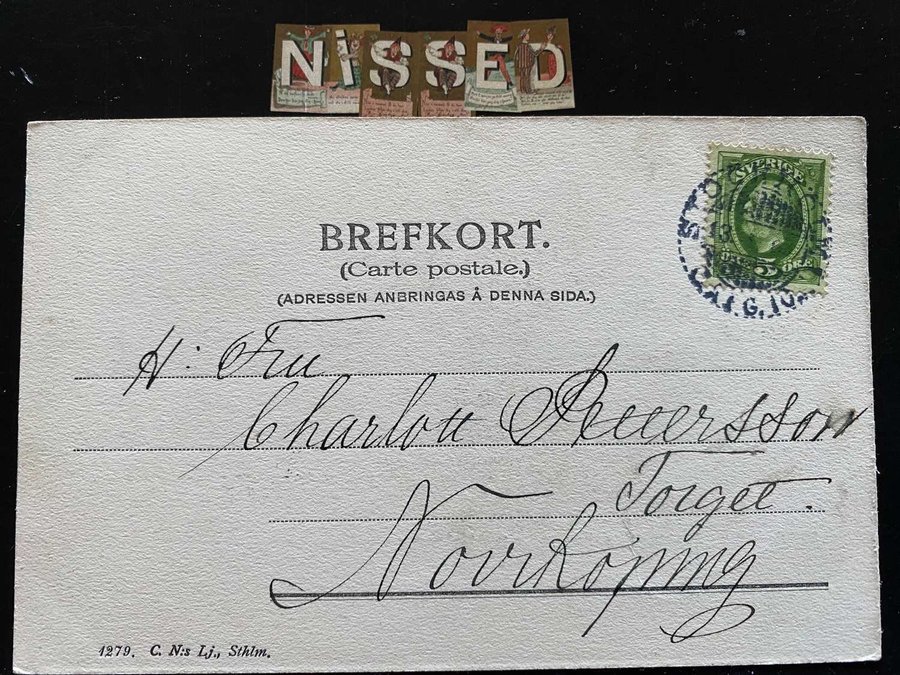 NiSSED
BREFKORT.
(Carte postale.)
(ADRESSEN ANBRINGAS Å DENNA SIDA.)
SVERIGE
5
ÖRE
H: Fru
Charlott Pettersson
Torget.
Norrköping
1279. C. N:s Lj., Sthlm.